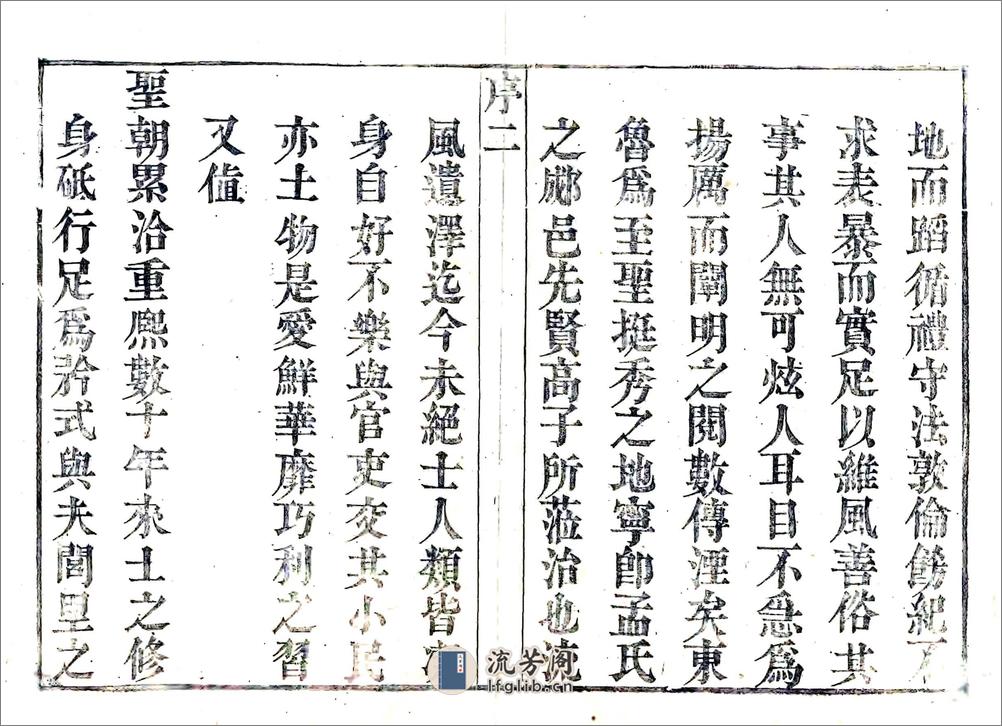 地而蹈循禮守法敦倫飭紀不
求表暴而實足以維風善俗其
事其人無可炫人耳目不急為
揚厲而闡明之閱數傳湮矣東
魯為至聖挺秀之地寧卽孟氏
之郕邑先賢高子所蒞治也流
序二
風遺澤迄今未絕士人類皆
身自好不樂與官吏交其小民
亦土物是愛鮮華靡巧利之習
又值
聖朝累洽重熙數十年來士之修
身砥行足為矜式與夫閭里之
流芳阁
lfglib.cn